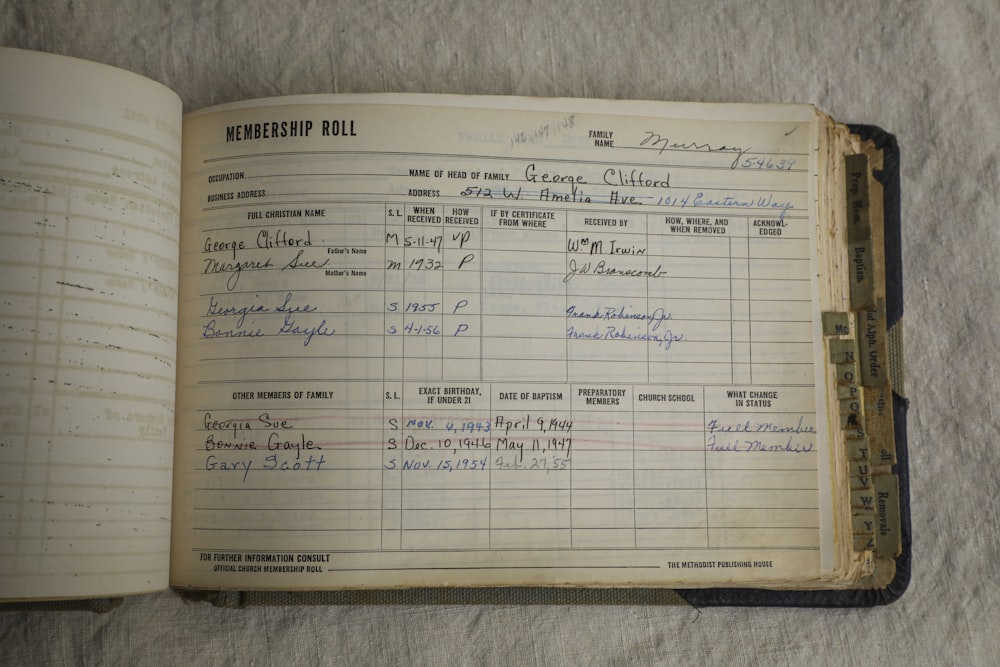 MEMBERSHIP ROLL
FAMILY NAME Murray
54639
OCCUPATION
NAME OF HEAD OF FAMILY George Clifford
BUSINESS ADDRESS
ADDRESS 512 W. Amelia Ave. 1014 Eastern Way
FULL CHRISTIAN NAME S. L. WHEN RECEIVED HOW RECEIVED IF BY CERTIFICATE FROM WHERE RECEIVED BY HOW, WHERE, AND WHEN REMOVED ACKNOWL-EDGED
George Clifford M 5-11-47 VP Wm M Irwin
Father's Name
Margaret Sue m 1932 P J W Branscomb
Mother's Name
Georgia Sue S 1955 P Frank Robinson, Jr.
Bonnie Gayle S 4-1-56 P Frank Robinson, Jr.
OTHER MEMBERS OF FAMILY EXACT BIRTHDAY, IF UNDER 21 DATE OF BAPTISM PREPARATORY MEMBERS CHURCH SCHOOL WHAT CHANGE IN STATUS
Georgia Sue S Nov. 4, 1943 April 9, 1944 Full Member
Bonnie Gayle S Dec. 10, 1946 May 11, 1947 Full Member
Gary Scott S Nov. 15, 1954 Feb. 27, 55
FOR FURTHER INFORMATION CONSULT
OFFICIAL CHURCH MEMBERSHIP ROLL
THE METHODIST PUBLISHING HOUSE
Prep. Mem
Baptism
Alph. Order
Removals
Mc
N
O
P
Q
S
T
U
V
W
Y
Z